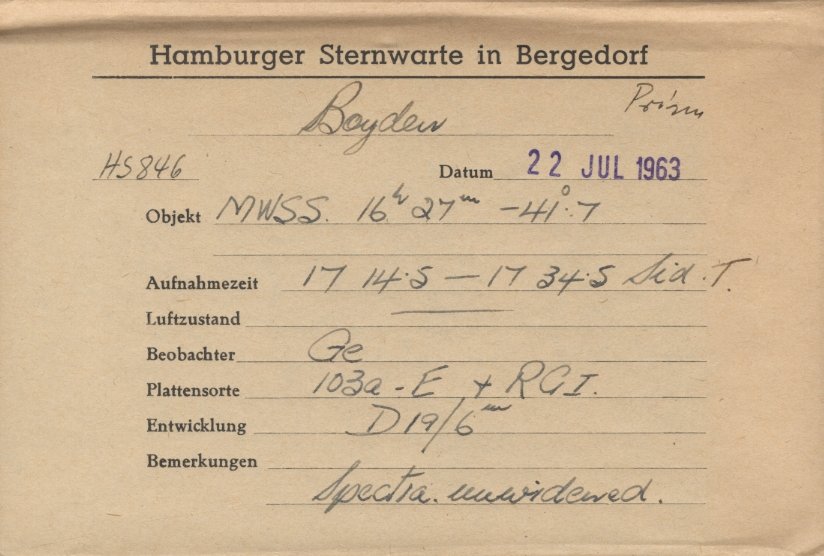 Hamburger Sternwarte in Bergedorf
Prism
Boyden
HS846 Datum 22 JUL 1963
Objekt MWSS. 16h 27m -41°.7
Aufnahmezeit 17 14.5 — 17 34.5 Sid. T.
Luftzustand —
Beobachter Ge
Plattensorte 103a-E + RG I.
Entwicklung D19/6m
Bemerkungen
Spectra. unwidened.